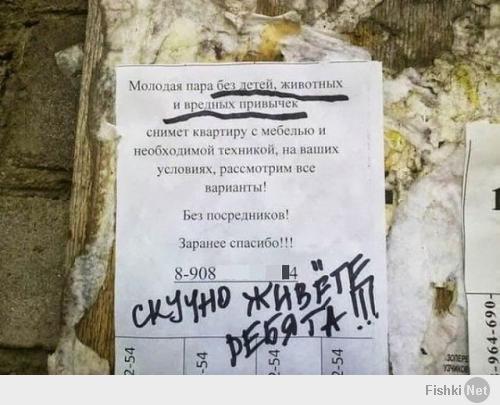 Молодая пара без детей, животных
и вредных привычек
снимет квартиру с мебелью и
необходимой техникой, на ваших
условиях, рассмотрим все
варианты!
Без посредников!
Заранее спасибо!!!
8-908 4
СКУЧНО ЖИВЁТЕ
РЕБЯТА!!!
2-54
2-54
2-54
2-54
8-964-690-
Fishki Net